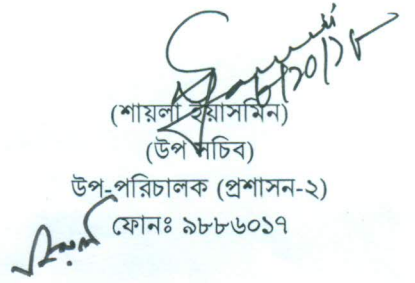 (শায়লা ইয়াসমিন)
(উপ সচিব)
উপ-পরিচালক (প্রশাসন-২)
ফোনঃ ৯৮৮৬০১৭